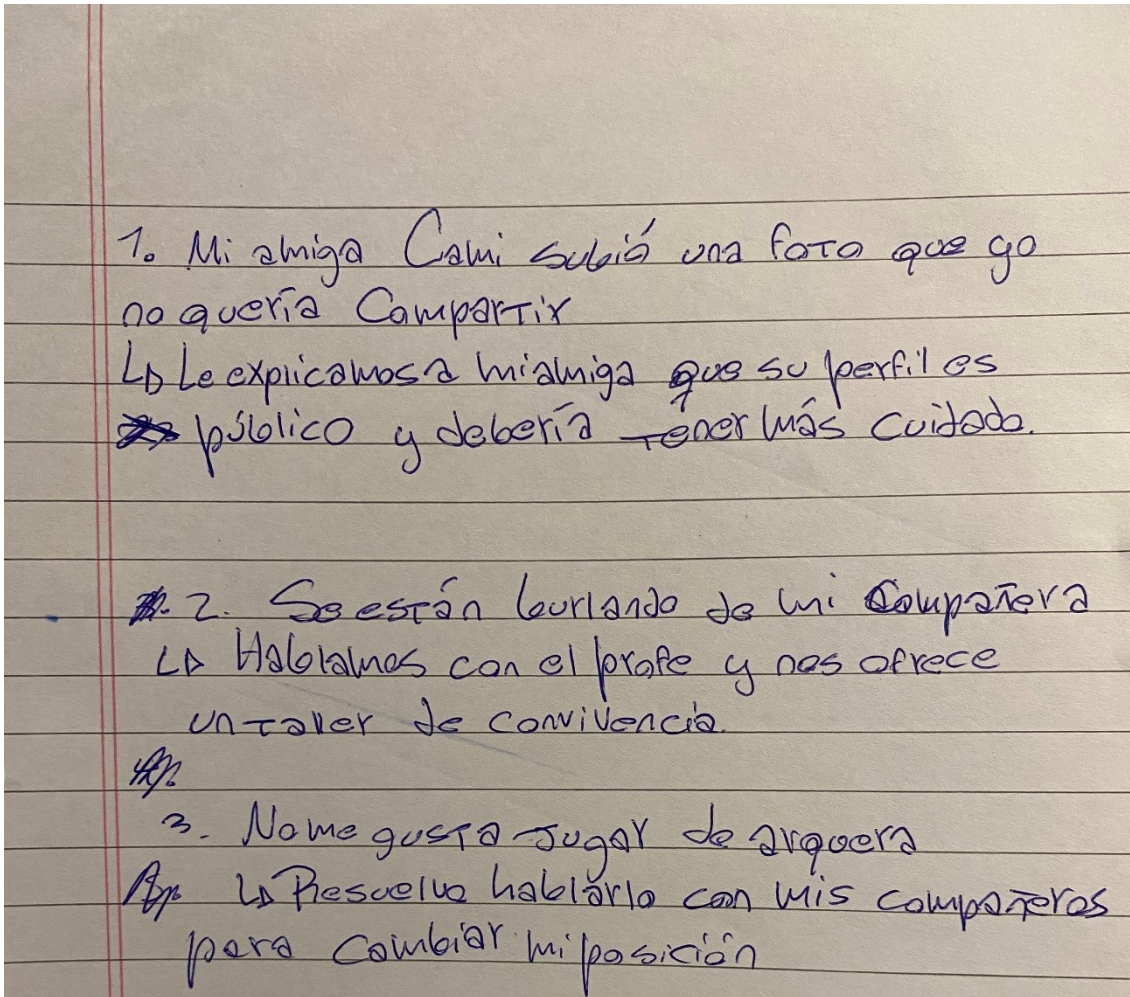 1. Mi amiga Cami subió una foto que yo
no quería Compartir
↳ Le explicamos a mi amiga que su perfil es
público y debería tener más cuidado.
2. Se están burlando de mi Compañera
↳ Hablamos con el profe y nos ofrece
un taller de convivencia.
3. No me gusta jugar de arquera
↳ Resuelvo hablarlo con mis compañeros
para cambiar mi posición